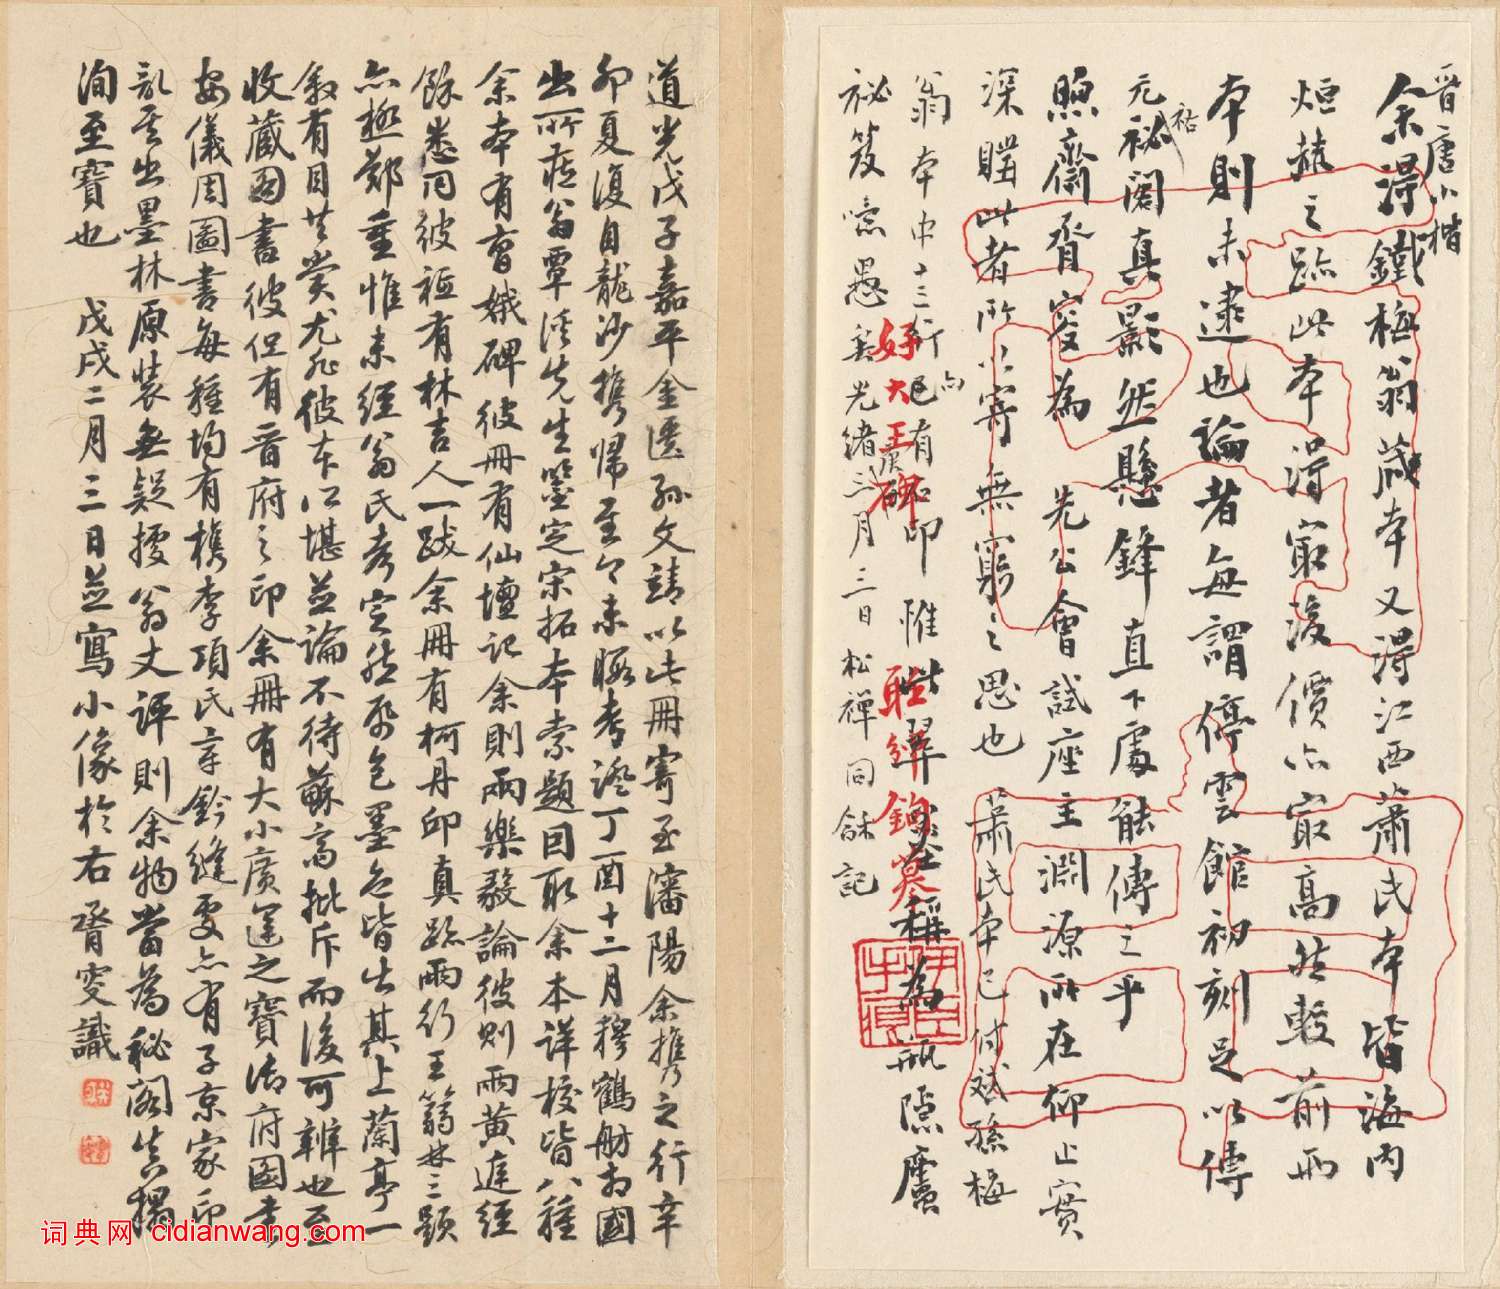 晋唐小楷
余得鐵梅翁藏本又得江西蕭氏本皆海内
烜赫之跡此本得最後價亦最高然較前兩
本則未逮也論者每謂停雲館初刻足以傳
元祕閣真影然懸鋒直下處能傳之乎
祐
煦齋胥窔為先公會試座主淵源所在仰止實
深購此者所以寄無窮之思也
蕭氏本已付斌孫梅
翁本中十三行已有石印惟此翠
向
稱為瓶隱廬
祕笈噫愚矣光緒
三月三日松禪同龢記
好大王碑
道光戊子嘉平金匱孫文靖以此冊寄至瀋陽余攜之行辛
卯夏復自龍沙攜歸至今未暇考證丁酉十二月穆鶴舫相國
出所藏翁覃溪先生鑒定宋拓本索題因取余本詳校皆八種
余本有曹娥碑彼冊有仙壇記余則兩樂毅論彼則兩黃庭經
餘悉同彼秪有林吉人一跋余冊有柯丹邱真跡兩行王篛林三題
亦極鄭重惟未經翁氏考定然番色墨色皆出其上蘭亭一
敘有目共賞尤非彼本所堪並論不待蘇高批斥而後可辨也至
收藏圖書彼但有晋府之印余冊有大小廣運之寶御府圖書
安儀周圖書每種均有檇李項氏章鈐縫處亦有子京家印
訊其出墨林原裝無疑據翁丈評則余物當為秘閣真榻
洵至寶也 戊戌二月三日並寫小像於右胥窔識
词典网 cidianwang.com